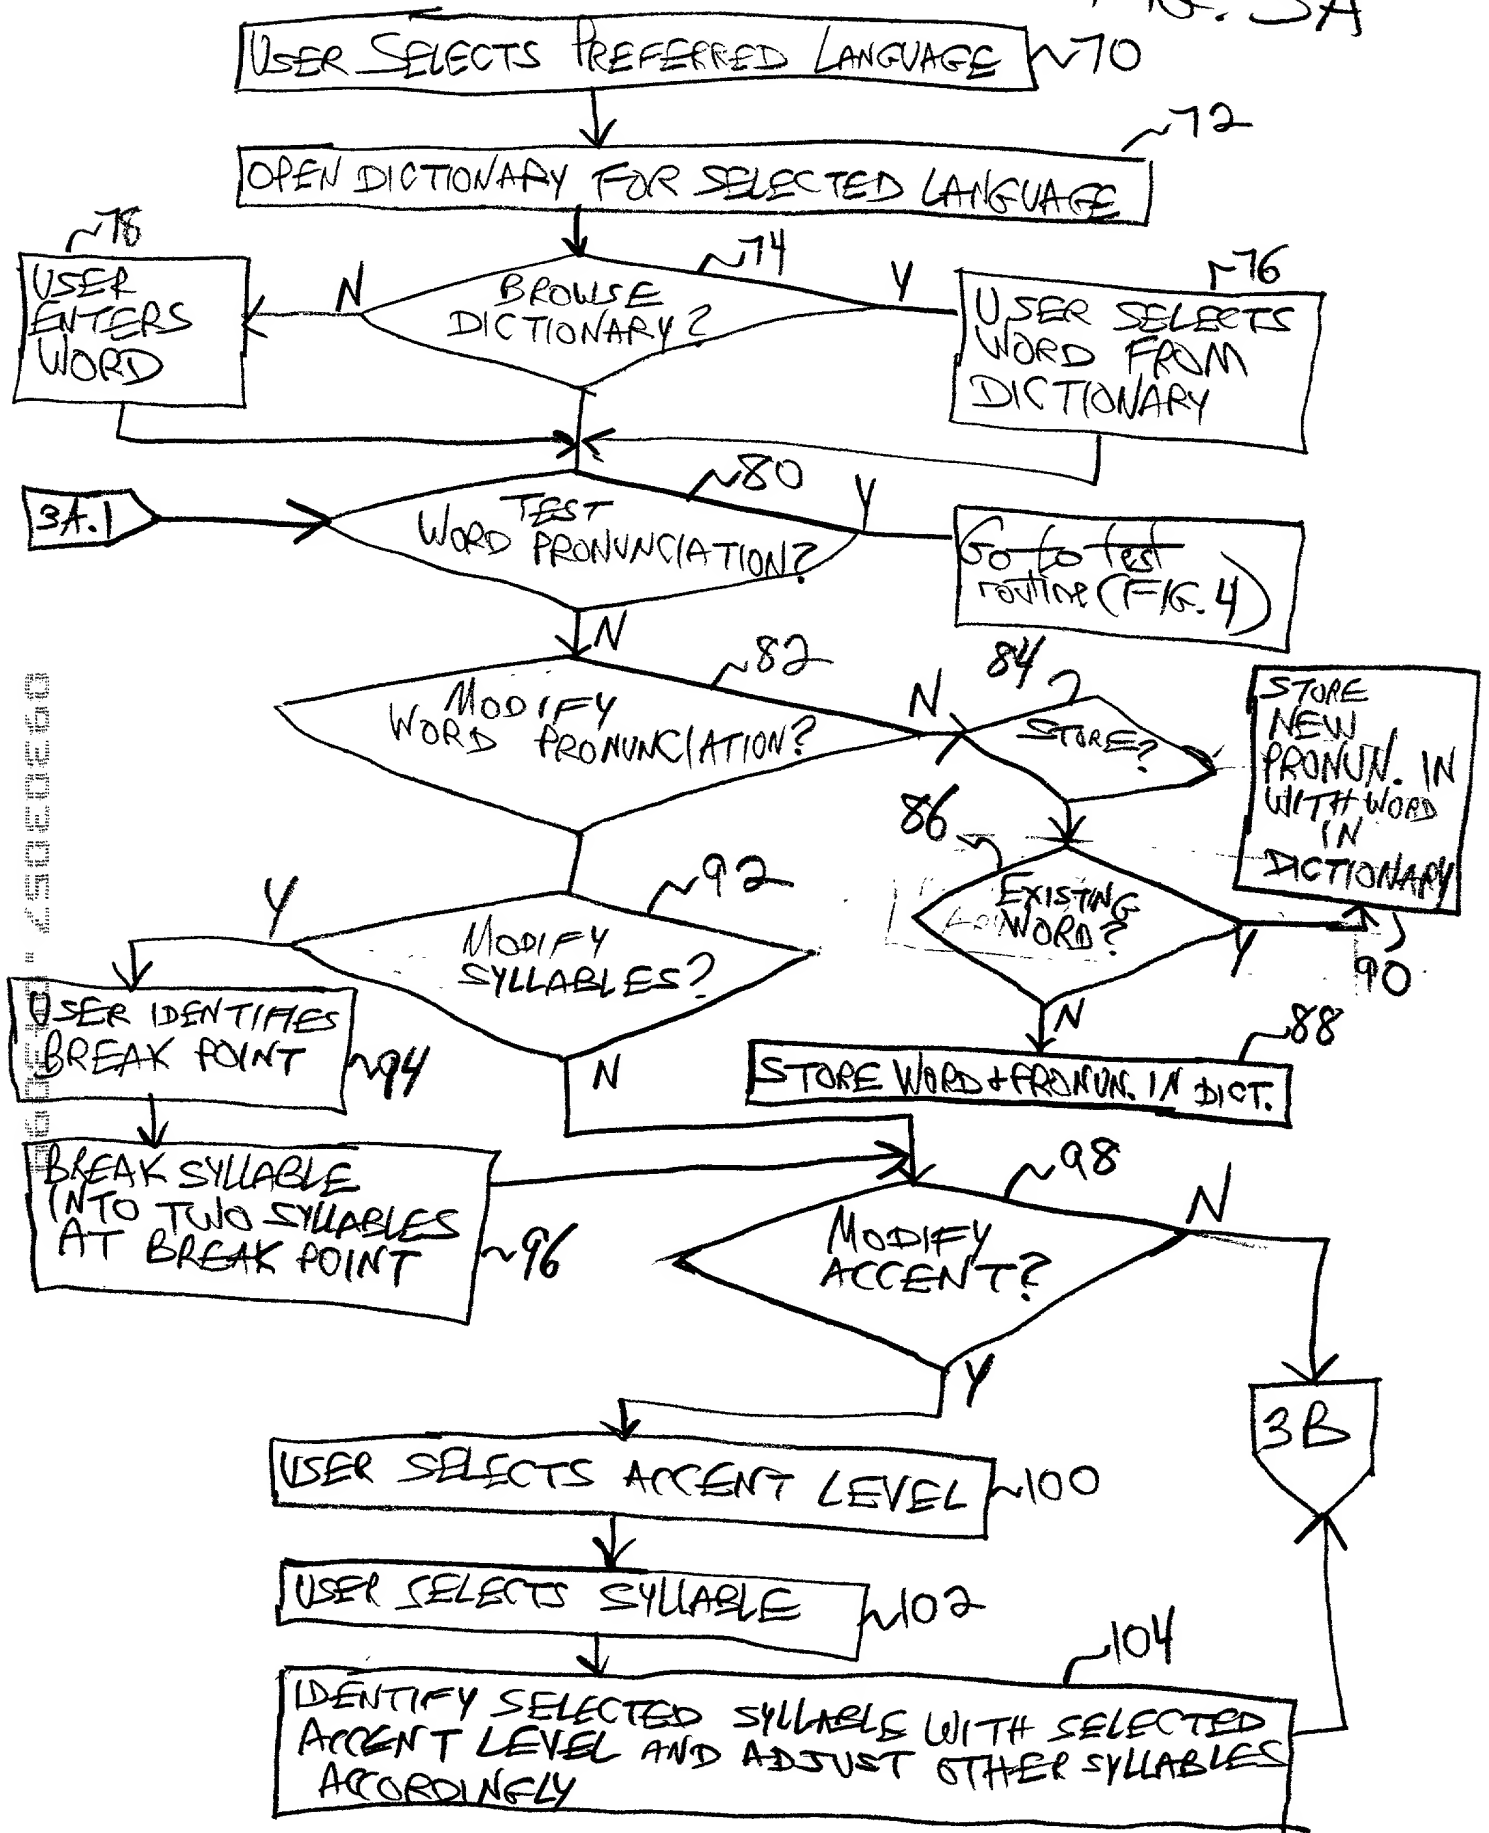 FIG. 3A
USER SELECTS PREFERRED LANGUAGE
70
72
OPEN DICTIONARY FOR SELECTED LANGUAGE
78
USER
ENTERS
WORD
N
74
BROWSE
DICTIONARY?
Y
76
USER SELECTS
WORD FROM
DICTIONARY
3A.1
80
TEST
WORD PRONUNCIATION?
Y
Go to test
routine (FIG. 4)
N
82
MODIFY
WORD PRONUNCIATION?
N
84
STORE?
STORE
NEW
PRONUN. IN
WITH WORD
IN
DICTIONARY
90
86
EXISTING
WORD?
Y
N
88
STORE WORD + PRONUN. IN DICT.
92
Y
MODIFY
SYLLABLES?
N
USER IDENTIFIES
BREAK POINT
94
BREAK SYLLABLE
INTO TWO SYLLABLES
AT BREAK POINT
96
98
MODIFY
ACCENT?
N
Y
3B
USER SELECTS ACCENT LEVEL
100
USER SELECTS SYLLABLE
102
104
IDENTIFY SELECTED SYLLABLE WITH SELECTED
ACCENT LEVEL AND ADJUST OTHER SYLLABLES
ACCORDINGLY